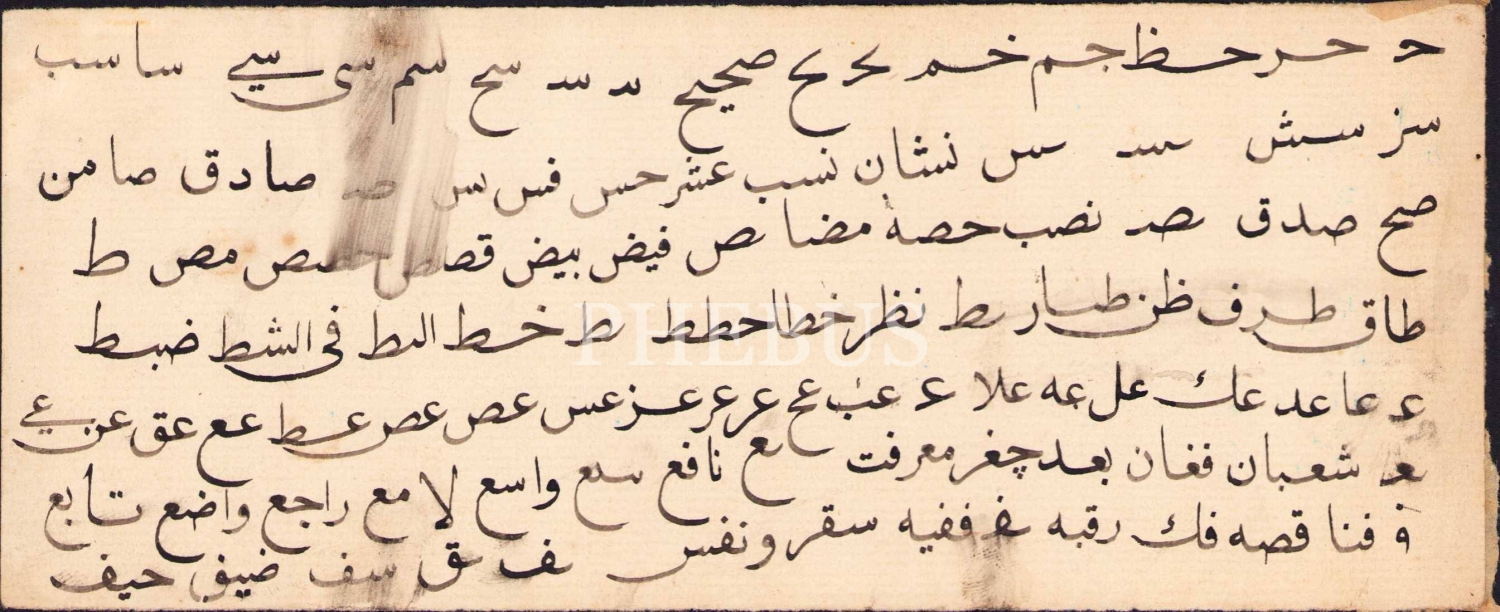 حـ حر حظ جم خم صحيح سـ سح سم سى سا سب
سز سش سس نشان نسب عشر حس فس س صـ صادق صا من
صح صدق صد نصب حصه مضا ص فيض بيض قصص مص ط
طاق طرف ظن طيار ط نظر خطا حطط ط خط البط فى الشط ضبط
عـ عا عد عك عل عه علا عـ عب عح عر عر عز عس عص عص عط عع عق عن عى
شعبان فغان بعد چغر معرفت نافع سع واسع لامع راجع واضع تابع
فـ فنا قصه فك رقبه ففيه سقر ونفس ف ق سف ضيف حيف
PHEBUS